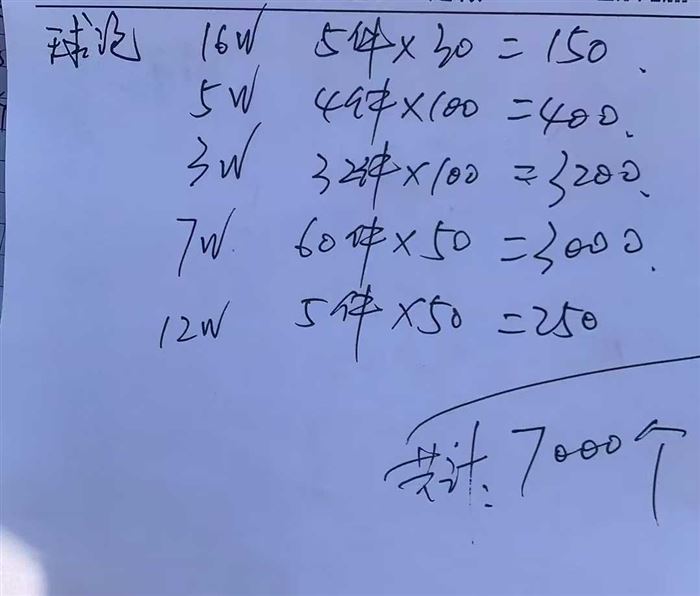 球泡 16W 5件×30=150.
5W 4件×100=400.
3W 32件×100=3200.
7W. 60件×50=3000.
12W 5件×50=250
共计:7000个